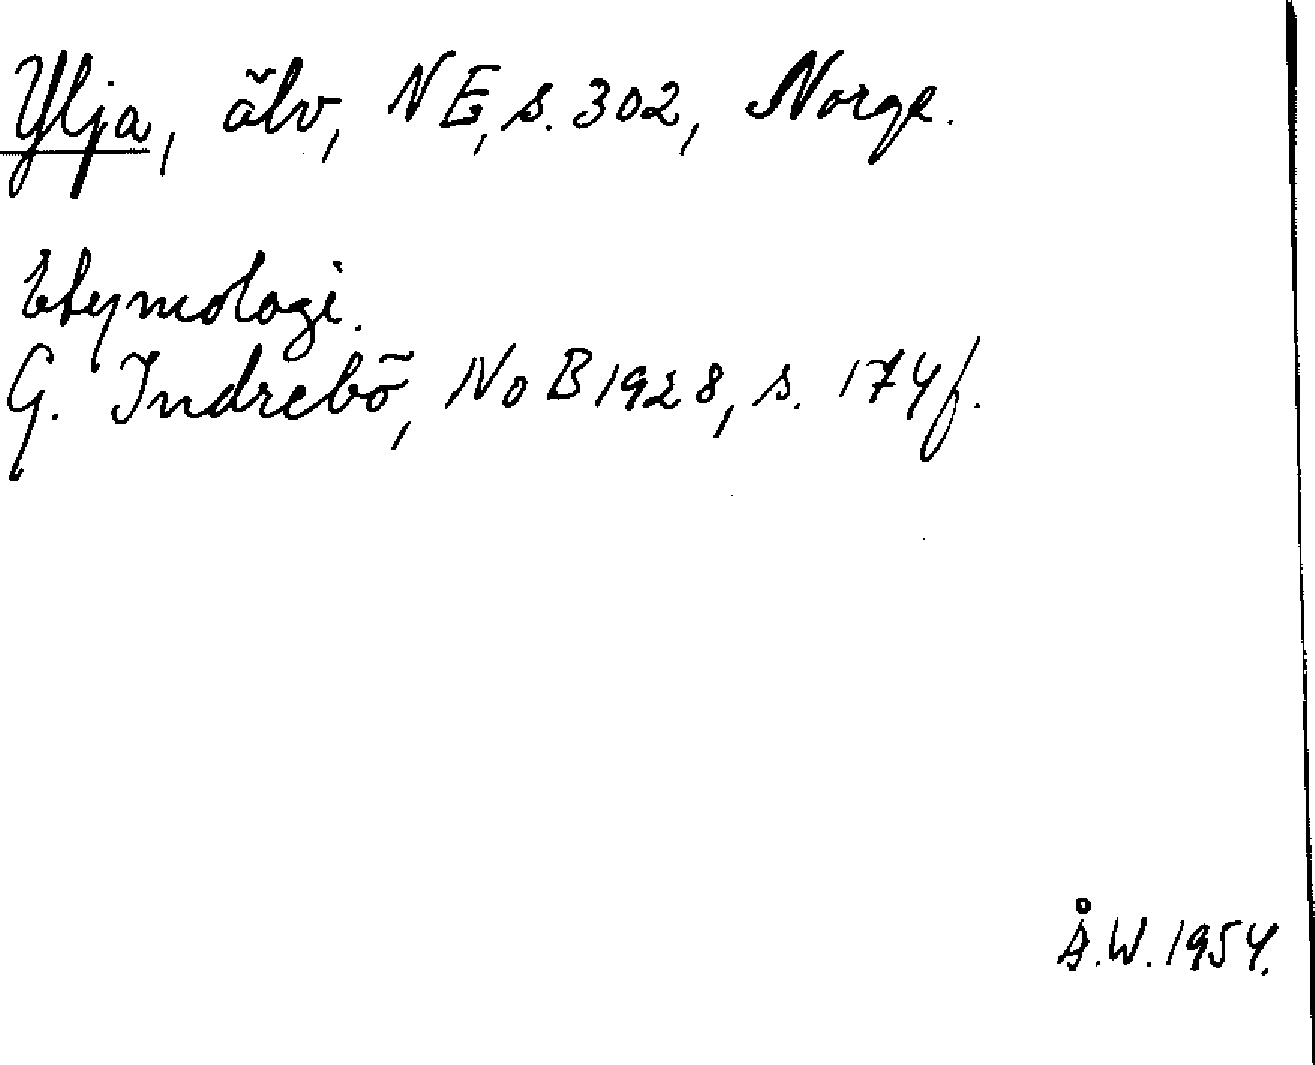 Ylja, älv, NE, s. 302, Norge.
Etymologi.
G. Indrebö, NoB 1928, s. 174f.
Å.W. 1954.